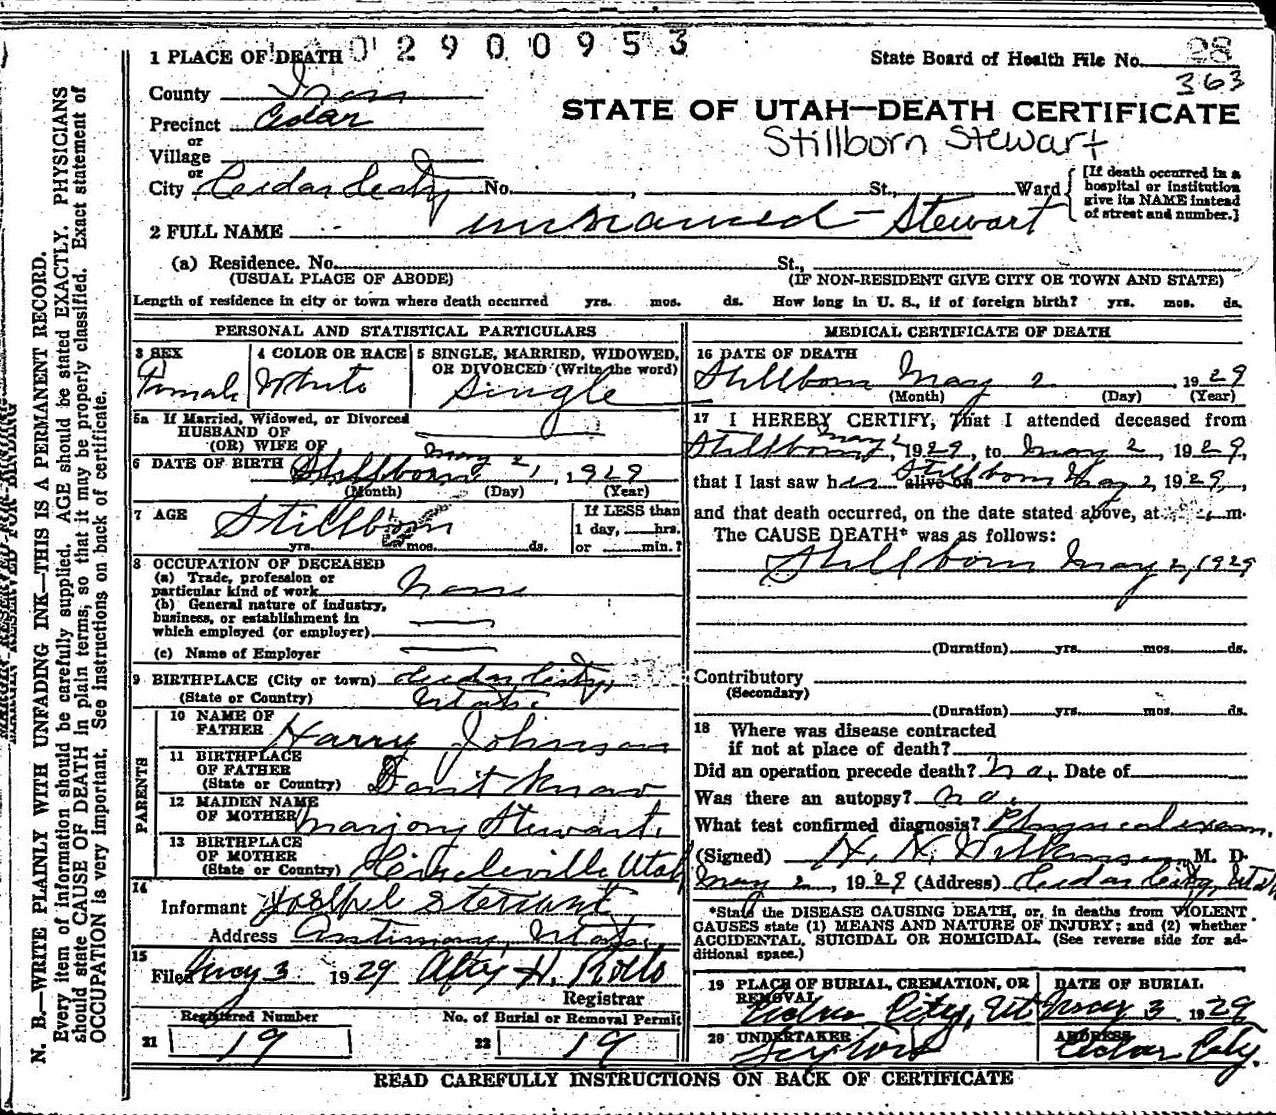 1 PLACE OF DEATH 02900953
State Board of Health File No. 28
363
County Iron
Precinct Cedar
or
Village
or
City Cedar City No. , St., Ward
[If death occurred in a hospital or institution give its NAME instead of street and number.]
STATE OF UTAH—DEATH CERTIFICATE
Stillborn Stewart
2 FULL NAME unnamed - Stewart
(a) Residence. No. St.,
(USUAL PLACE OF ABODE) (IF NON-RESIDENT GIVE CITY OR TOWN AND STATE)
Length of residence in city or town where death occurred yrs. mos. ds. How long in U. S., if of foreign birth? yrs. mos. ds.
PERSONAL AND STATISTICAL PARTICULARS
3 SEX Female
4 COLOR OR RACE White
5 SINGLE, MARRIED, WIDOWED, OR DIVORCED (Write the word) Single
5a If Married, Widowed, or Divorced
HUSBAND OF
(OR) WIFE OF
6 DATE OF BIRTH Stillborn May 2, 1929
(Month) (Day) (Year)
7 AGE Stillborn
yrs. mos. ds.
If LESS than
1 day, hrs.
or min.?
8 OCCUPATION OF DECEASED
(a) Trade, profession or
particular kind of work None
(b) General nature of industry,
business, or establishment in
which employed (or employer)
(c) Name of Employer
9 BIRTHPLACE (City or town) Cedar City,
(State or Country) Utah.
PARENTS
10 NAME OF
FATHER Harry Johnson
11 BIRTHPLACE
OF FATHER
(State or Country) Don't know
12 MAIDEN NAME
OF MOTHER Marjory Stewart.
13 BIRTHPLACE
OF MOTHER
(State or Country) Circleville Utah
14
Informant Stewart
Address Antimony, Utah,
15
Filed May 3 1929 H. Rollo
Registrar
Registered Number
21 19
No. of Burial or Removal Permit
22 19
MEDICAL CERTIFICATE OF DEATH
16 DATE OF DEATH
Stillborn May 2, 1929
(Month) (Day) (Year)
17 I HEREBY CERTIFY, That I attended deceased from
Stillborn May 2, 1929, to May 2, 1929,
that I last saw her alive on Stillborn May 2, 1929,
and that death occurred, on the date stated above, at m.
The CAUSE DEATH* was as follows:
Stillborn May 2, 1929
(Duration) yrs. mos. ds.
Contributory
(Secondary)
(Duration) yrs. mos. ds.
18 Where was disease contracted
if not at place of death?
Did an operation precede death? No. Date of
Was there an autopsy? No.
What test confirmed diagnosis? Physical exam.
(Signed) M. D.
May 2, 1929 (Address) Cedar City, Utah
*State the DISEASE CAUSING DEATH, or, in deaths from VIOLENT
CAUSES state (1) MEANS AND NATURE OF INJURY; and (2) whether
ACCIDENTAL, SUICIDAL OR HOMICIDAL. (See reverse side for ad-
ditional space.)
19 PLACE OF BURIAL, CREMATION, OR REMOVAL
Cedar City, Ut
DATE OF BURIAL
May 3 1929
20 UNDERTAKER
ADDRESS
Cedar City.
READ CAREFULLY INSTRUCTIONS ON BACK OF CERTIFICATE
MARGIN RESERVED FOR BINDING
N. B.—WRITE PLAINLY WITH UNFADING INK—THIS IS A PERMANENT RECORD.
Every item of information should be carefully supplied. AGE should be stated EXACTLY. PHYSICIANS
should state CAUSE OF DEATH in plain terms, so that it may be properly classified. Exact statement of
OCCUPATION is very important. See instructions on back of certificate.